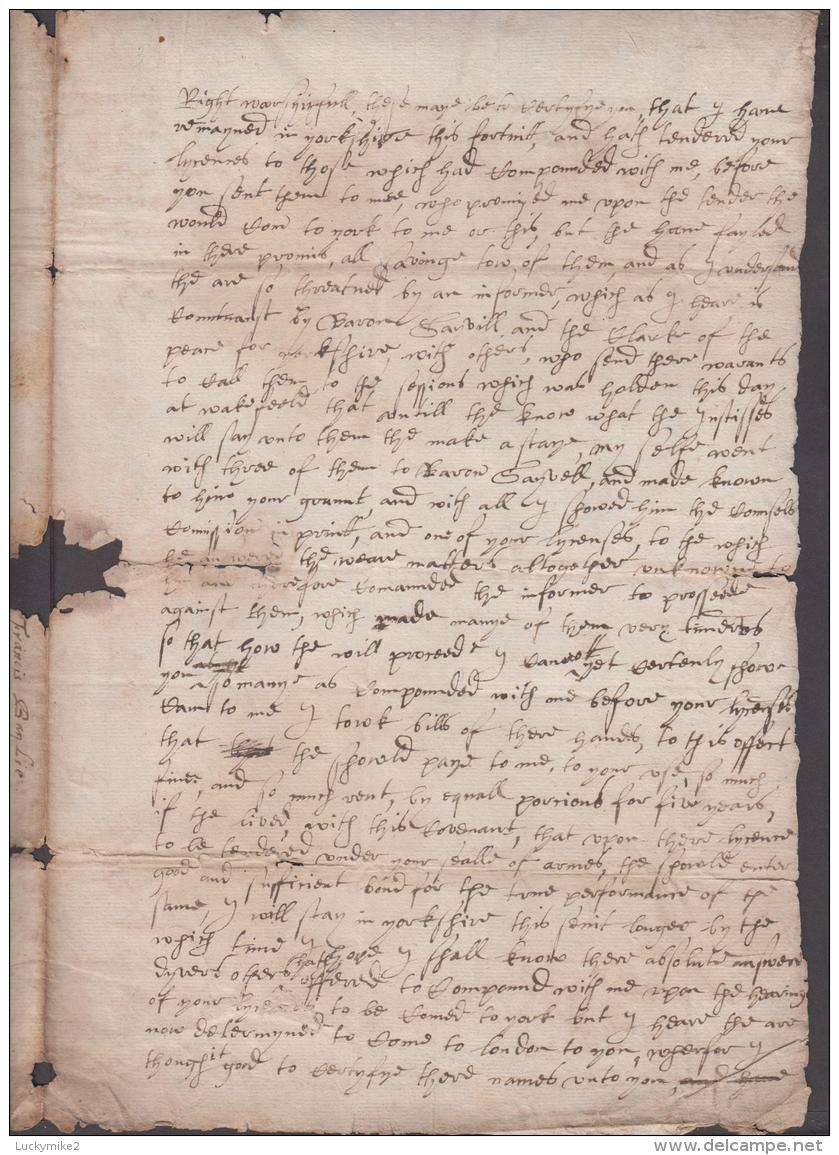 Right worshipfull, these maye be to certyfye you, that I have
remayned in yorkshire this fortnit, and hath tendered your
lycences to those which had compounded with me, before
you sent them to mee, who promised me upon the tender the
would com to york to me or this, but the have fayled
in there promis, all savinge tow of them, and as I understand
the are so threatned by an informer, which as I heare is
by Baron Savill and the Clarke of the
peace for yorkshire, with others, who send there warants
to call them to the sessions which was holden this day
at wakefeeld that untill the know what the Justisses
will say unto them the make a staye, my selfe went
with three of them to Baron Sayvell, and made known
to him your graunt, and with all I showed him the
Comission in print, and one of your lycenses, to the which
he answered the weare matters altogether unknowne to
therefore comaunded the informer to prosseede
against them, which made manye of them very timeros
so that how the will proceede I canott yet certenly showe
you so manye as compounded with me before your lycenses
cam to me I towk bills of there hands, to this effect
that the showld paye to me, to your use, so much
fines, and so much rent, by equall porcions for five years,
if the lived, with this covenant, that upon there lycence
to be tendered under your sealle of armes, the showld enter
good and sufficient bond for the true performance of the
same, I will stay in yorkshire this senit longer by the
which time I hope I shall know there absolute answere
dyvers others that offered to compound with me upon the hearing
of your to be comed to york but I heare the are
now determyned to come to london to you, wherfor I
thought good to certyfye there names unto you, and have
Francis
Luckymike2
www.delcampe.net